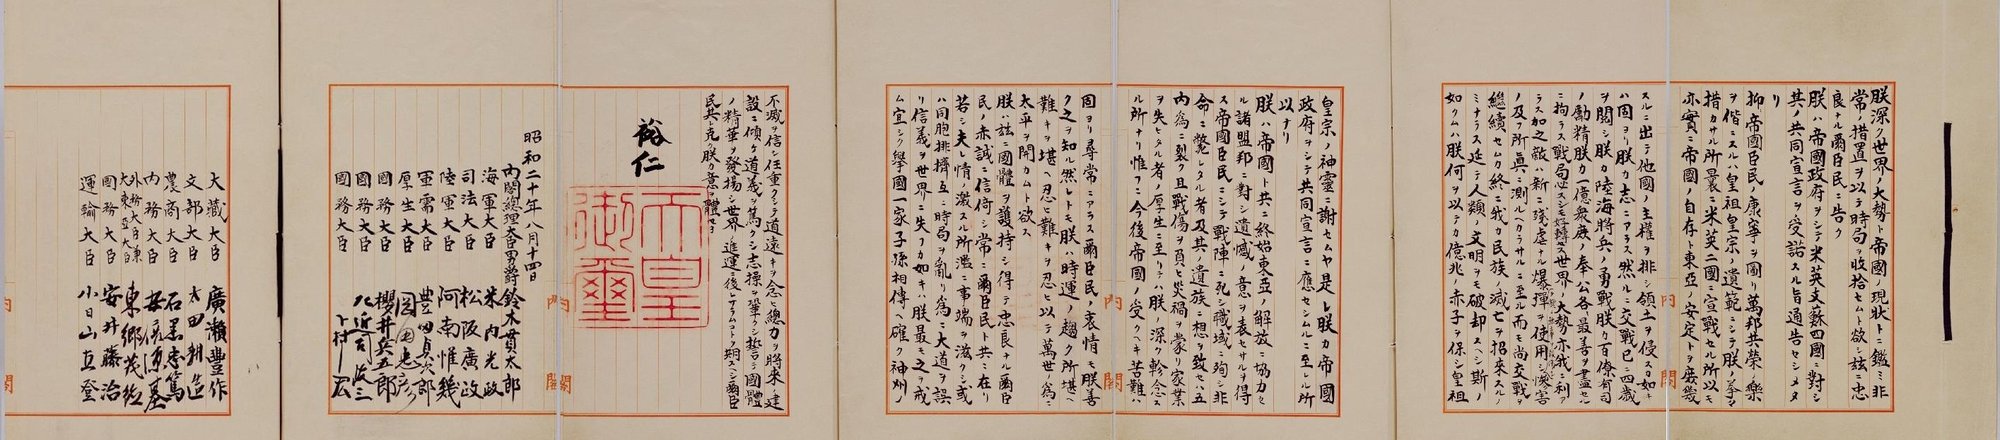 朕深ク世界ノ大勢ト帝國ノ現狀トニ鑑ミ非
常ノ措置ヲ以テ時局ヲ收拾セムト欲シ茲ニ忠
良ナル爾臣民ニ告ク
朕ハ帝國政府ヲシテ米英支蘇四國ニ對シ
其ノ共同宣言ヲ受諾スル旨通告セシメタ
リ
抑〻帝國臣民ノ康寧ヲ圖リ萬邦共榮ノ樂
ヲ偕ニスルハ皇祖皇宗ノ遺範ニシテ朕ノ拳〻
措カサル所曩ニ米英二國ニ宣戰セル所以モ
亦實ニ帝國ノ自存ト東亞ノ安定トヲ庶幾
内閣
スルニ出テ他國ノ主權ヲ排シ領土ヲ侵スカ如キ
ハ固ヨリ朕カ志ニアラス然ルニ交戰已ニ四歲
ヲ閲シ朕カ陸海將兵ノ勇戰朕カ百僚有司
ノ勵精朕カ一億衆庶ノ奉公各最善ヲ盡セル
ニ拘ラス戰局必スシモ好轉セス世界ノ大勢亦我ニ利ア
ラス加之敵ハ新ニ殘虐ナル爆彈ヲ使用シ慘害
ノ及フ所眞ニ測ルヘカラサルニ至ル而モ尚交戰ヲ
繼續セムカ終ニ我カ民族ノ滅亡ヲ招來スルノ
ミナラス延テ人類ノ文明ヲモ破却スヘシ斯ノ
如クムハ朕何ヲ以テカ億兆ノ赤子ヲ保シ皇祖
皇宗ノ神靈ニ謝セムヤ是レ朕カ帝國
政府ヲシテ共同宣言ニ應セシムルニ至レル所
以ナリ
朕ハ帝國ト共ニ終始東亞ノ解放ニ協力セ
ル諸盟邦ニ對シ遺憾ノ意ヲ表セサルヲ得
ス帝國臣民ニシテ戰陣ニ死シ職域ニ殉シ非
命ニ斃レタル者及其ノ遺族ニ想ヲ致セハ五
内爲ニ裂ク且戰傷ヲ負ヒ災禍ヲ蒙リ家業
ヲ失ヒタル者ノ厚生ニ至リテハ朕ノ深ク軫念ス
ル所ナリ惟フニ今後帝國ノ受クヘキ苦難ハ
内閣
固ヨリ尋常ニアラス爾臣民ノ衷情モ朕善
ク之ヲ知ル然レトモ朕ハ時運ノ趨ク所堪ヘ
難キヲ堪ヘ忍ヒ難キヲ忍ヒ以テ萬世ノ爲ニ
太平ヲ開カムト欲ス
朕ハ茲ニ國體ヲ護持シ得テ忠良ナル爾臣
民ノ赤誠ニ信倚シ常ニ爾臣民ト共ニ在リ
若シ夫レ情ノ激スル所濫ニ事端ヲ滋クシ或
ハ同胞排擠互ニ時局ヲ亂リ爲ニ大道ヲ誤
リ信義ヲ世界ニ失フカ如キハ朕最モ之ヲ戒
ム宜シク擧國一家子孫相傳ヘ確ク神州ノ
不滅ヲ信シ任重クシテ道遠キヲ念ヒ總力ヲ將來ノ建
設ニ傾ケ道義ヲ篤クシ志操ヲ鞏クシ誓テ國體
ノ精華ヲ發揚シ世界ノ進運ニ後レサラムコトヲ期スヘシ爾臣
民其レ克ク朕カ意ヲ體セヨ
裕仁
天皇
御璽
内閣
昭和二十年八月十四日
内閣總理大臣男爵 鈴木貫太郎
海軍大臣 米内光政
司法大臣 松阪廣政
陸軍大臣 阿南惟幾
軍需大臣 豊田貞次郎
厚生大臣 岡田忠彦
國務大臣 櫻井兵五郎
國務大臣 左近司政三
國務大臣 下村宏
大藏大臣 廣瀬豐作
文部大臣 太田耕造
農商大臣 石黒忠篤
内務大臣 安倍源基
外務大臣兼
大東亞大臣 東郷茂徳
國務大臣 安井藤治
運輸大臣 小日山直登
内閣